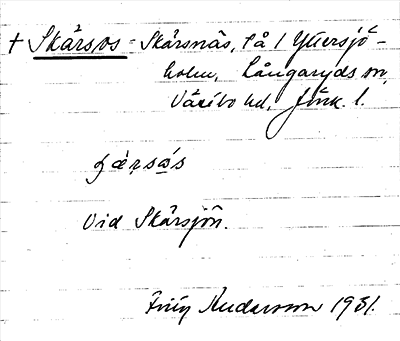 † Skårsos = Skårsnäs, få / Yttersjö-
holm, Långaryds sn,
Västbo hd, Jönk. l.
Vid Skårsjön.
Andersson 1931.